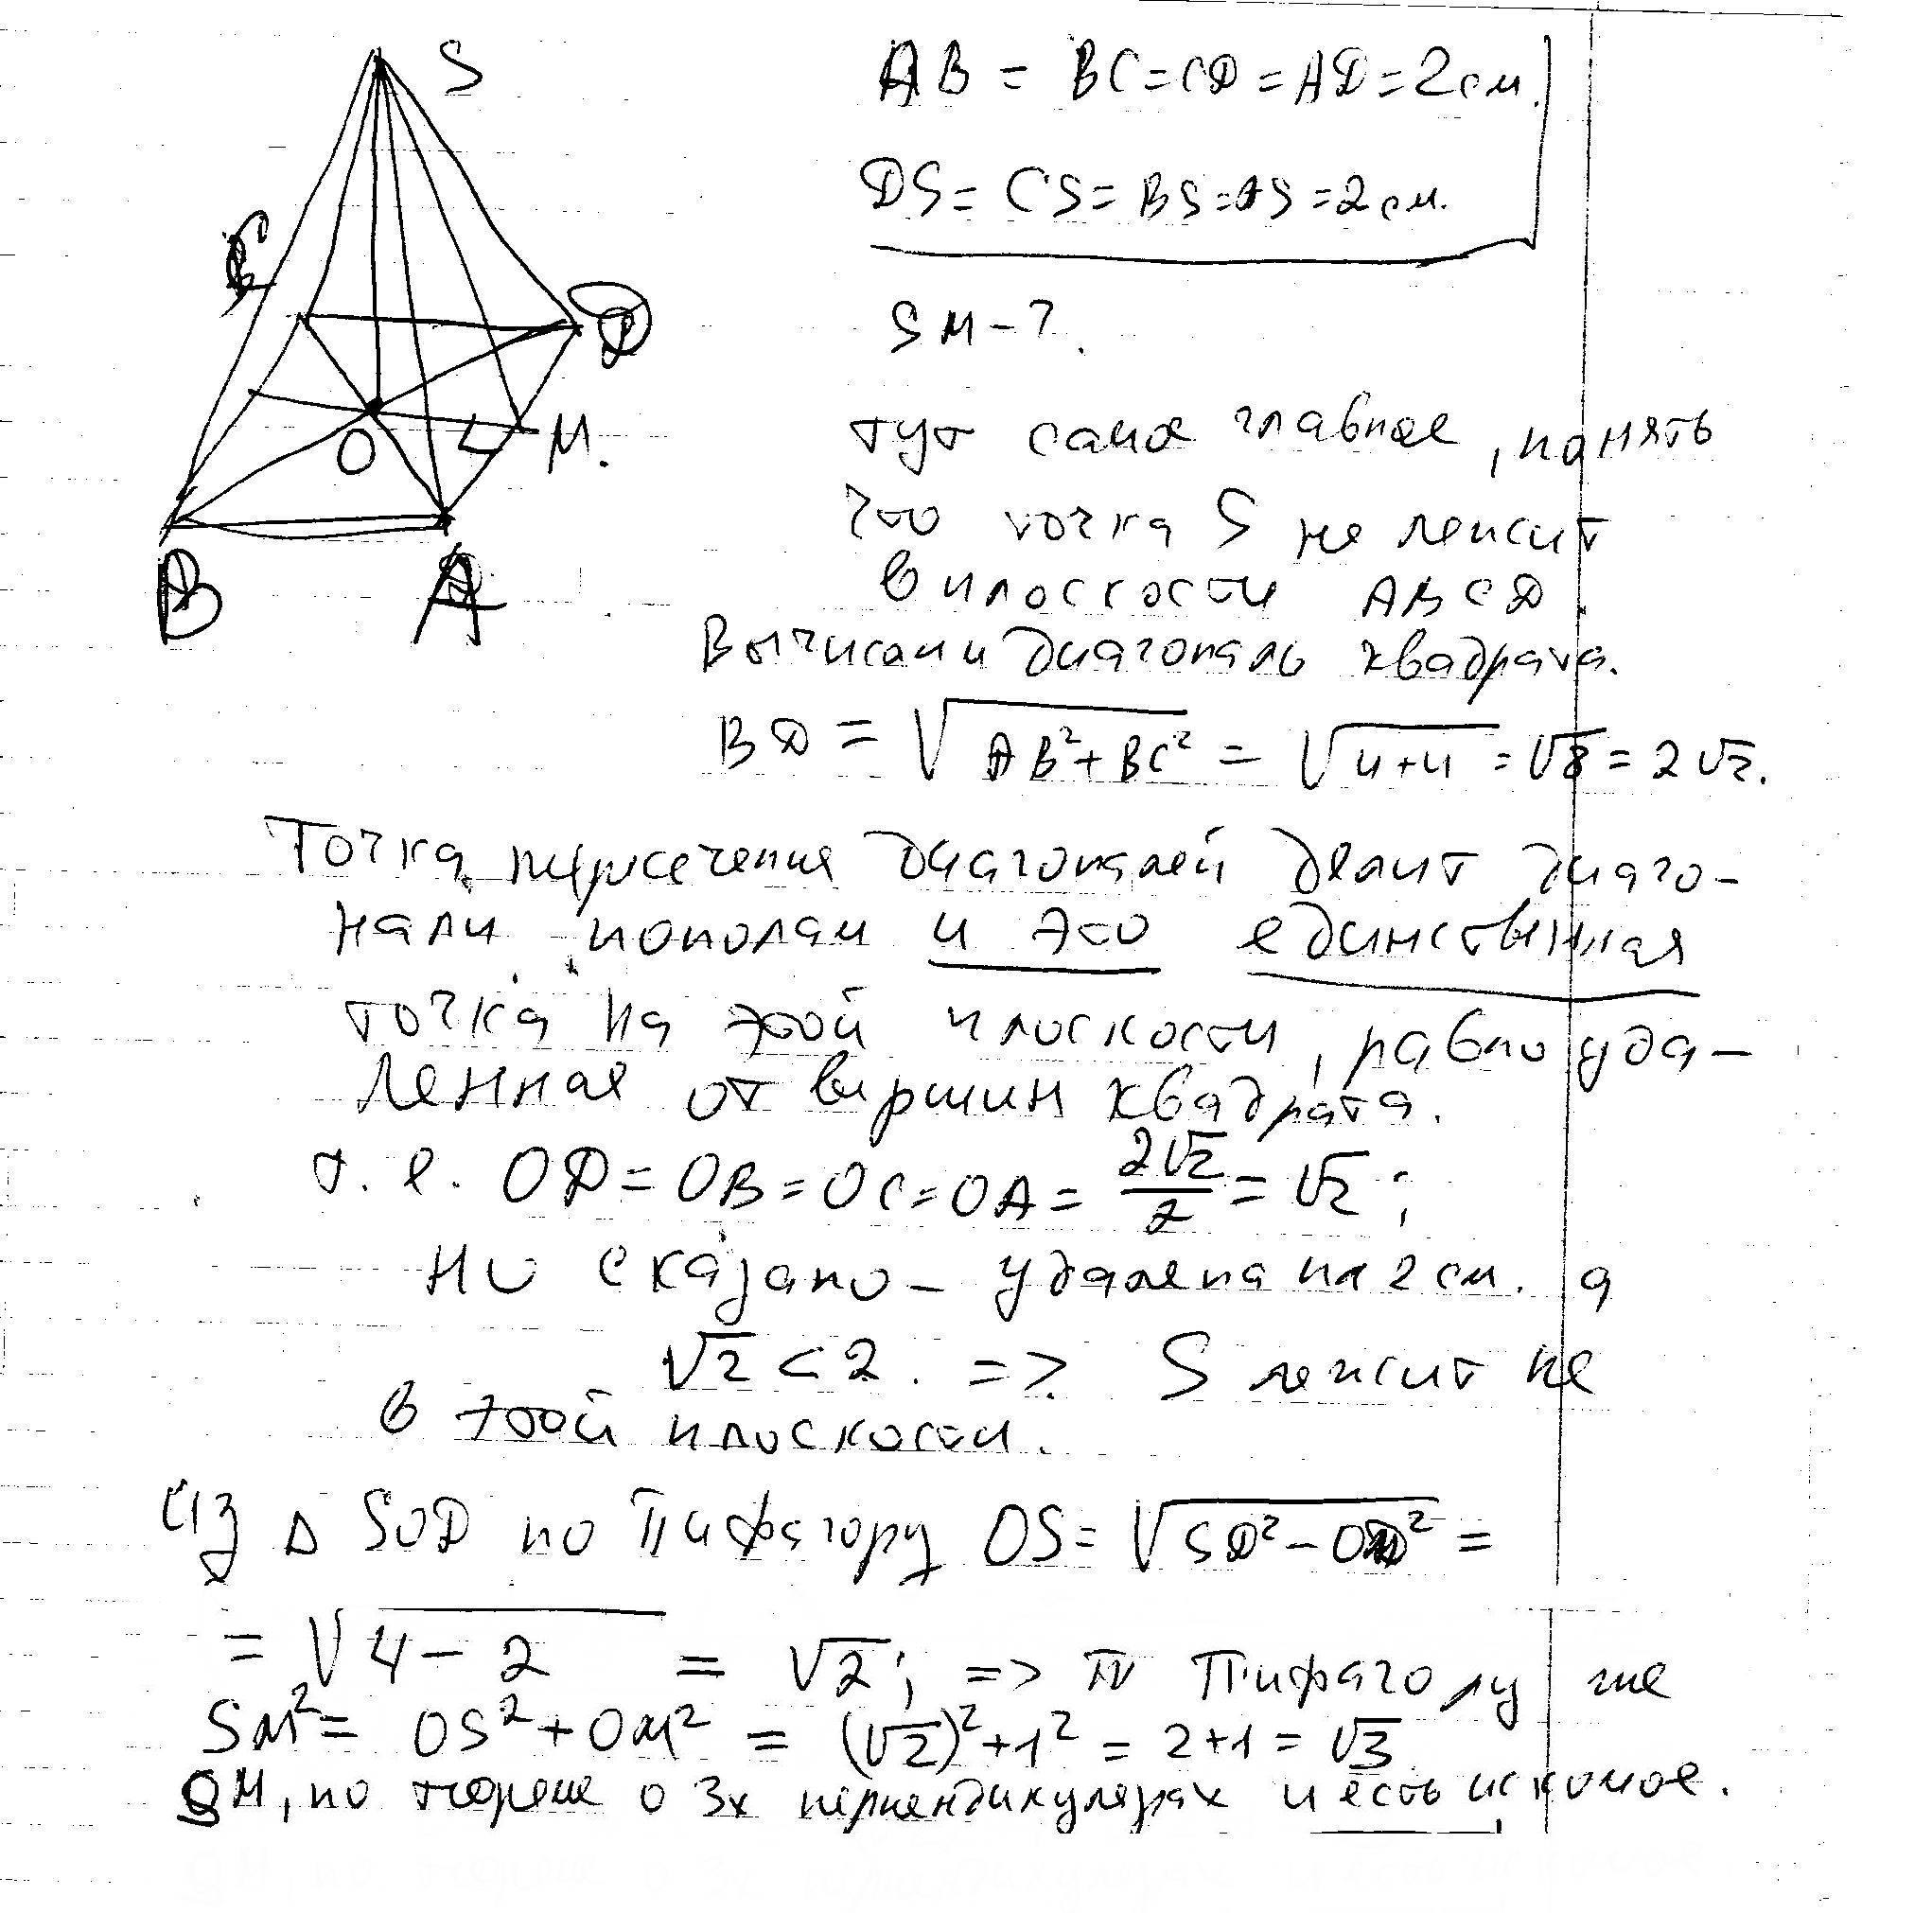 S
C
D
O
M.
B
A
AB = BC = CD = AD = 2 см.
DS = CS = BS = AS = 2 см.
SM - ?.
тут самое главное, понять
что точка S не лежит
в плоскости ABCD.
Вычислим диагональ квадрата.
BD = √(AB² + BC²) = √(4+4) = √8 = 2√2.
Точка пересечения диагоналей делит диаго-
нали пополам и это единственная
точка на этой плоскости, равноуда-
ленная от вершин квадрата.
т. е. OD = OB = OC = OA = 2√2/2 = √2;
Но сказано - удалена на 2 см. а
√2 < 2. => S лежит не
в этой плоскости.
Из Δ SOD по Пифагору OS = √(SD² - OD²) =
= √(4 - 2) = √2; => по Пифагору же
SM² = OS² + OM² = (√2)² + 1² = 2+1 = √3
SM, по теореме о 3х перпендикулярах и есть искомое.